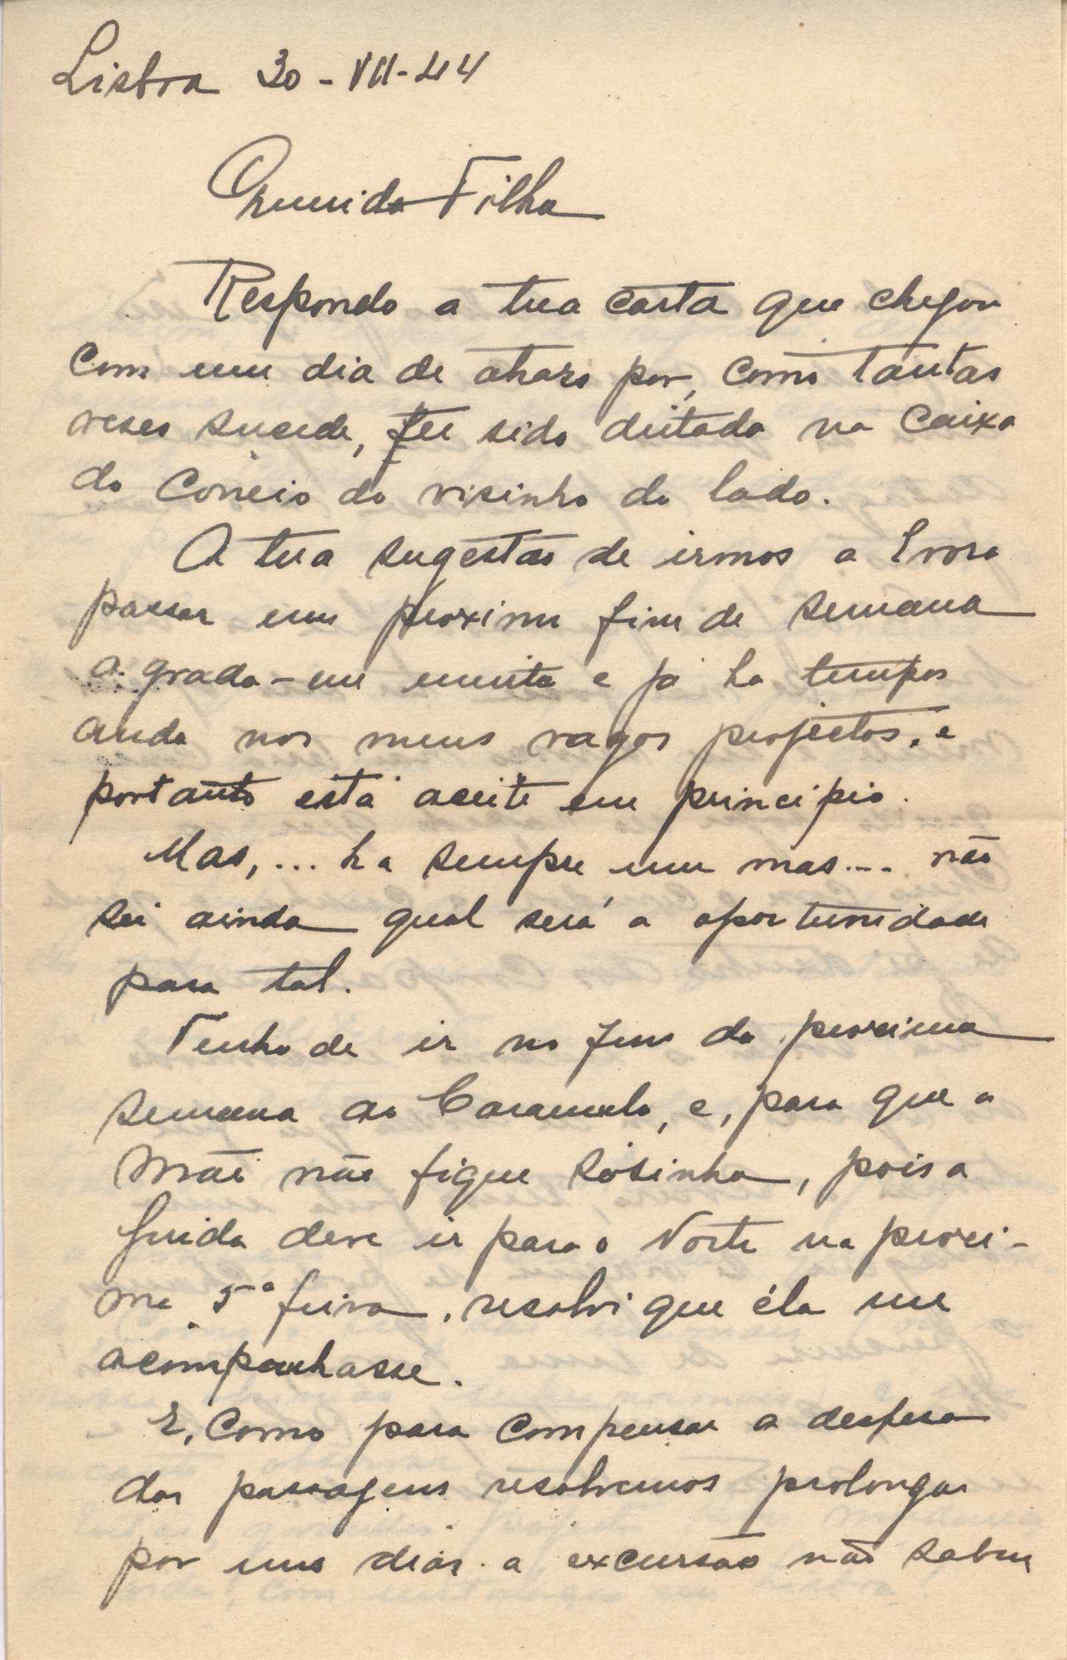 Lisboa 30-VII-44
Querida Filha
Respondo a tua carta que chegou
com um dia de atrazo por, como tantas
veses sucede, ter sido deitada na caixa
do correio do visinho do lado.
A tua sugestão de irmos a Evora
passar um proximo fim de semana
agrada-me muito e já ha tempos
anda nos meus vagos projectos, e
portanto está aceite em principio.
Mas,... ha sempre um mas... não
sei ainda qual será a oportunidade
para tal.
Tenho de ir no fim da proxima
semana ao Caramulo, e, para que a
Mãi não fique sósinha, pois a
Guida deve ir para o Norte na proxi-
ma 5ª feira, resolvi que éla me
acompanhasse.
E, como para compensar a despesa
das passagens resolvemos prolongar
por uns dias a excursão não sabem